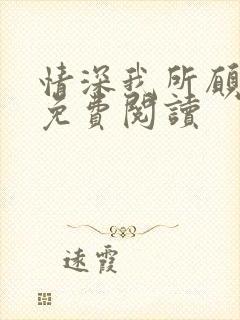 情深我所願
免費閱讀
遠霞